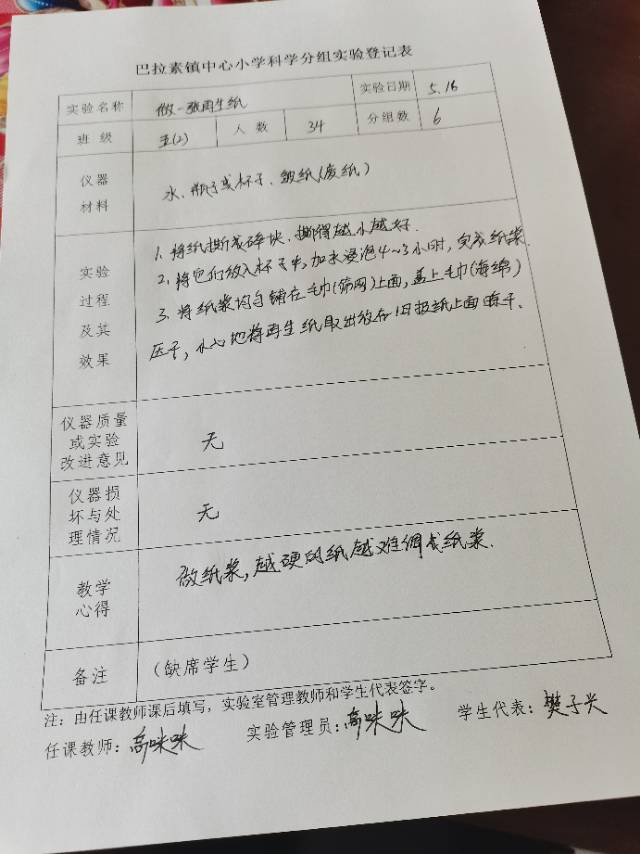 巴拉素镇中心小学科学分组实验登记表
实验名称 做一张再生纸 实验日期 5.16
班级 五(2) 人数 34 分组数 6
仪器材料 水、瓶子或杯子、皱纸(废纸)
实验过程及其效果
1. 将纸撕成碎块、撕得越小越好.
2. 将它们放入杯子中,加水浸泡4~3小时,完成纸浆.
3. 将纸浆均匀铺在毛巾(筛网)上面,盖上毛巾(海绵)
压干,小心地将再生纸取出放在旧报纸上面晾干.
仪器质量或实验改进意见 无
仪器损坏与处理情况 无
教学心得 做纸浆,越硬的纸越难调成纸浆.
备注 (缺席学生)
注:由任课教师课后填写,实验室管理教师和学生代表签字。
任课教师:高咪咪 实验管理员:高咪咪 学生代表:樊子兴